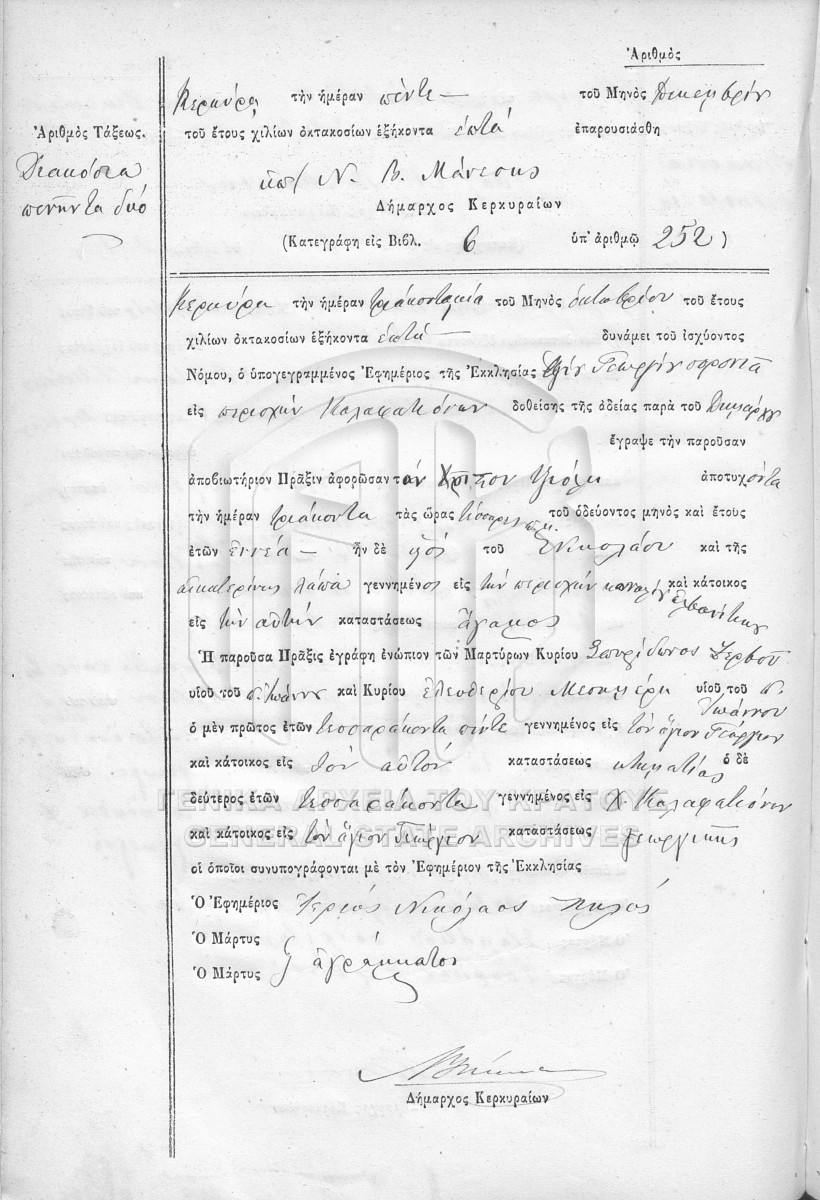 Ἀριθμὸς
Κερκύρᾳ τὴν ἡμέραν πέντε — τοῦ Μηνὸς Δεκεμβρίου
Ἀριθμὸς Τάξεως.
τοῦ ἔτους χιλίων ὀκτακοσίων ἑξήκοντα ἑπτὰ ἐπαρουσιάσθη
Διακόσια
πενῆντα δύο
Ν. Β. Μάνεσης
Δήμαρχος Κερκυραίων
(Κατεγράφη εἰς Βιβλ. 6 ὑπ' ἀριθμῷ 252)
Κερκύρα τὴν ἡμέραν τριακοντα μία τοῦ Μηνὸς ὀκτωβρίου τοῦ ἔτους
χιλίων ὀκτακοσίων ἑξήκοντα ἑπτὰ — δυνάμει τοῦ ἰσχύοντος
Νόμου, ὁ ὑπογεγραμμένος Ἐφημέριος τῆς Ἐκκλησίας Γεωργίου
εἰς περιοχὴν Καλαφατιόνων δοθείσης τῆς ἀδείας παρὰ τοῦ Δημάρχου
ἔγραψε τὴν παροῦσαν
ἀποβιωτήριον Πρᾶξιν ἀφορῶσαν τὸν ἀποτυχόντα
τὴν ἡμέραν τριάκοντα τὰς ὥρας τέσσαρες π.μ. τοῦ ὁδεύοντος μηνὸς καὶ ἔτους
ἐτῶν ἐννέα — ἦν δὲ υἱός τοῦ Νικολάου καὶ τῆς
αἰκατερίνης λάπα γεννημένος εἰς τὴν περιοχὴν καὶ κάτοικος
εἰς τὴν αὐτὴν καταστάσεως ἄγαμος
Ἡ παροῦσα Πρᾶξις ἐγράφη ἐνώπιον τῶν Μαρτύρων Κυρίου Σπυρίδωνος Ζερβοῦ
υἱοῦ τοῦ π. Ἰωάννου καὶ Κυρίου ἐλευθερίου υἱοῦ τοῦ π. Ἰωάννου
ὁ μὲν πρῶτος ἐτῶν τεσσαράκοντα πέντε γεννημένος εἰς τὸν ἅγιον Γεώργιον
καὶ κάτοικος εἰς τὸν αὐτόν καταστάσεως κτηματίας ὁ δὲ
ΓΕΝΙΚΑ ΑΡΧΕΙΑ ΤΟΥ ΚΡΑΤΟΥΣ
δεύτερος ἐτῶν τεσσαράκοντα γεννημένος εἰς Χ. Καλαφατιόνων
GENERAL STATE ARCHIVES
καὶ κάτοικος εἰς τὸν ἅγιον Γεώργιον καταστάσεως γεωργικῆς
οἱ ὁποῖοι συνυπογράφονται μὲ τὸν Ἐφημέριον τῆς Ἐκκλησίας
Ὁ Ἐφημέριος Ἱερεύς Νικόλαος
Ὁ Μάρτυς
ἀγράμματοι
Ὁ Μάρτυς
Δήμαρχος Κερκυραίων